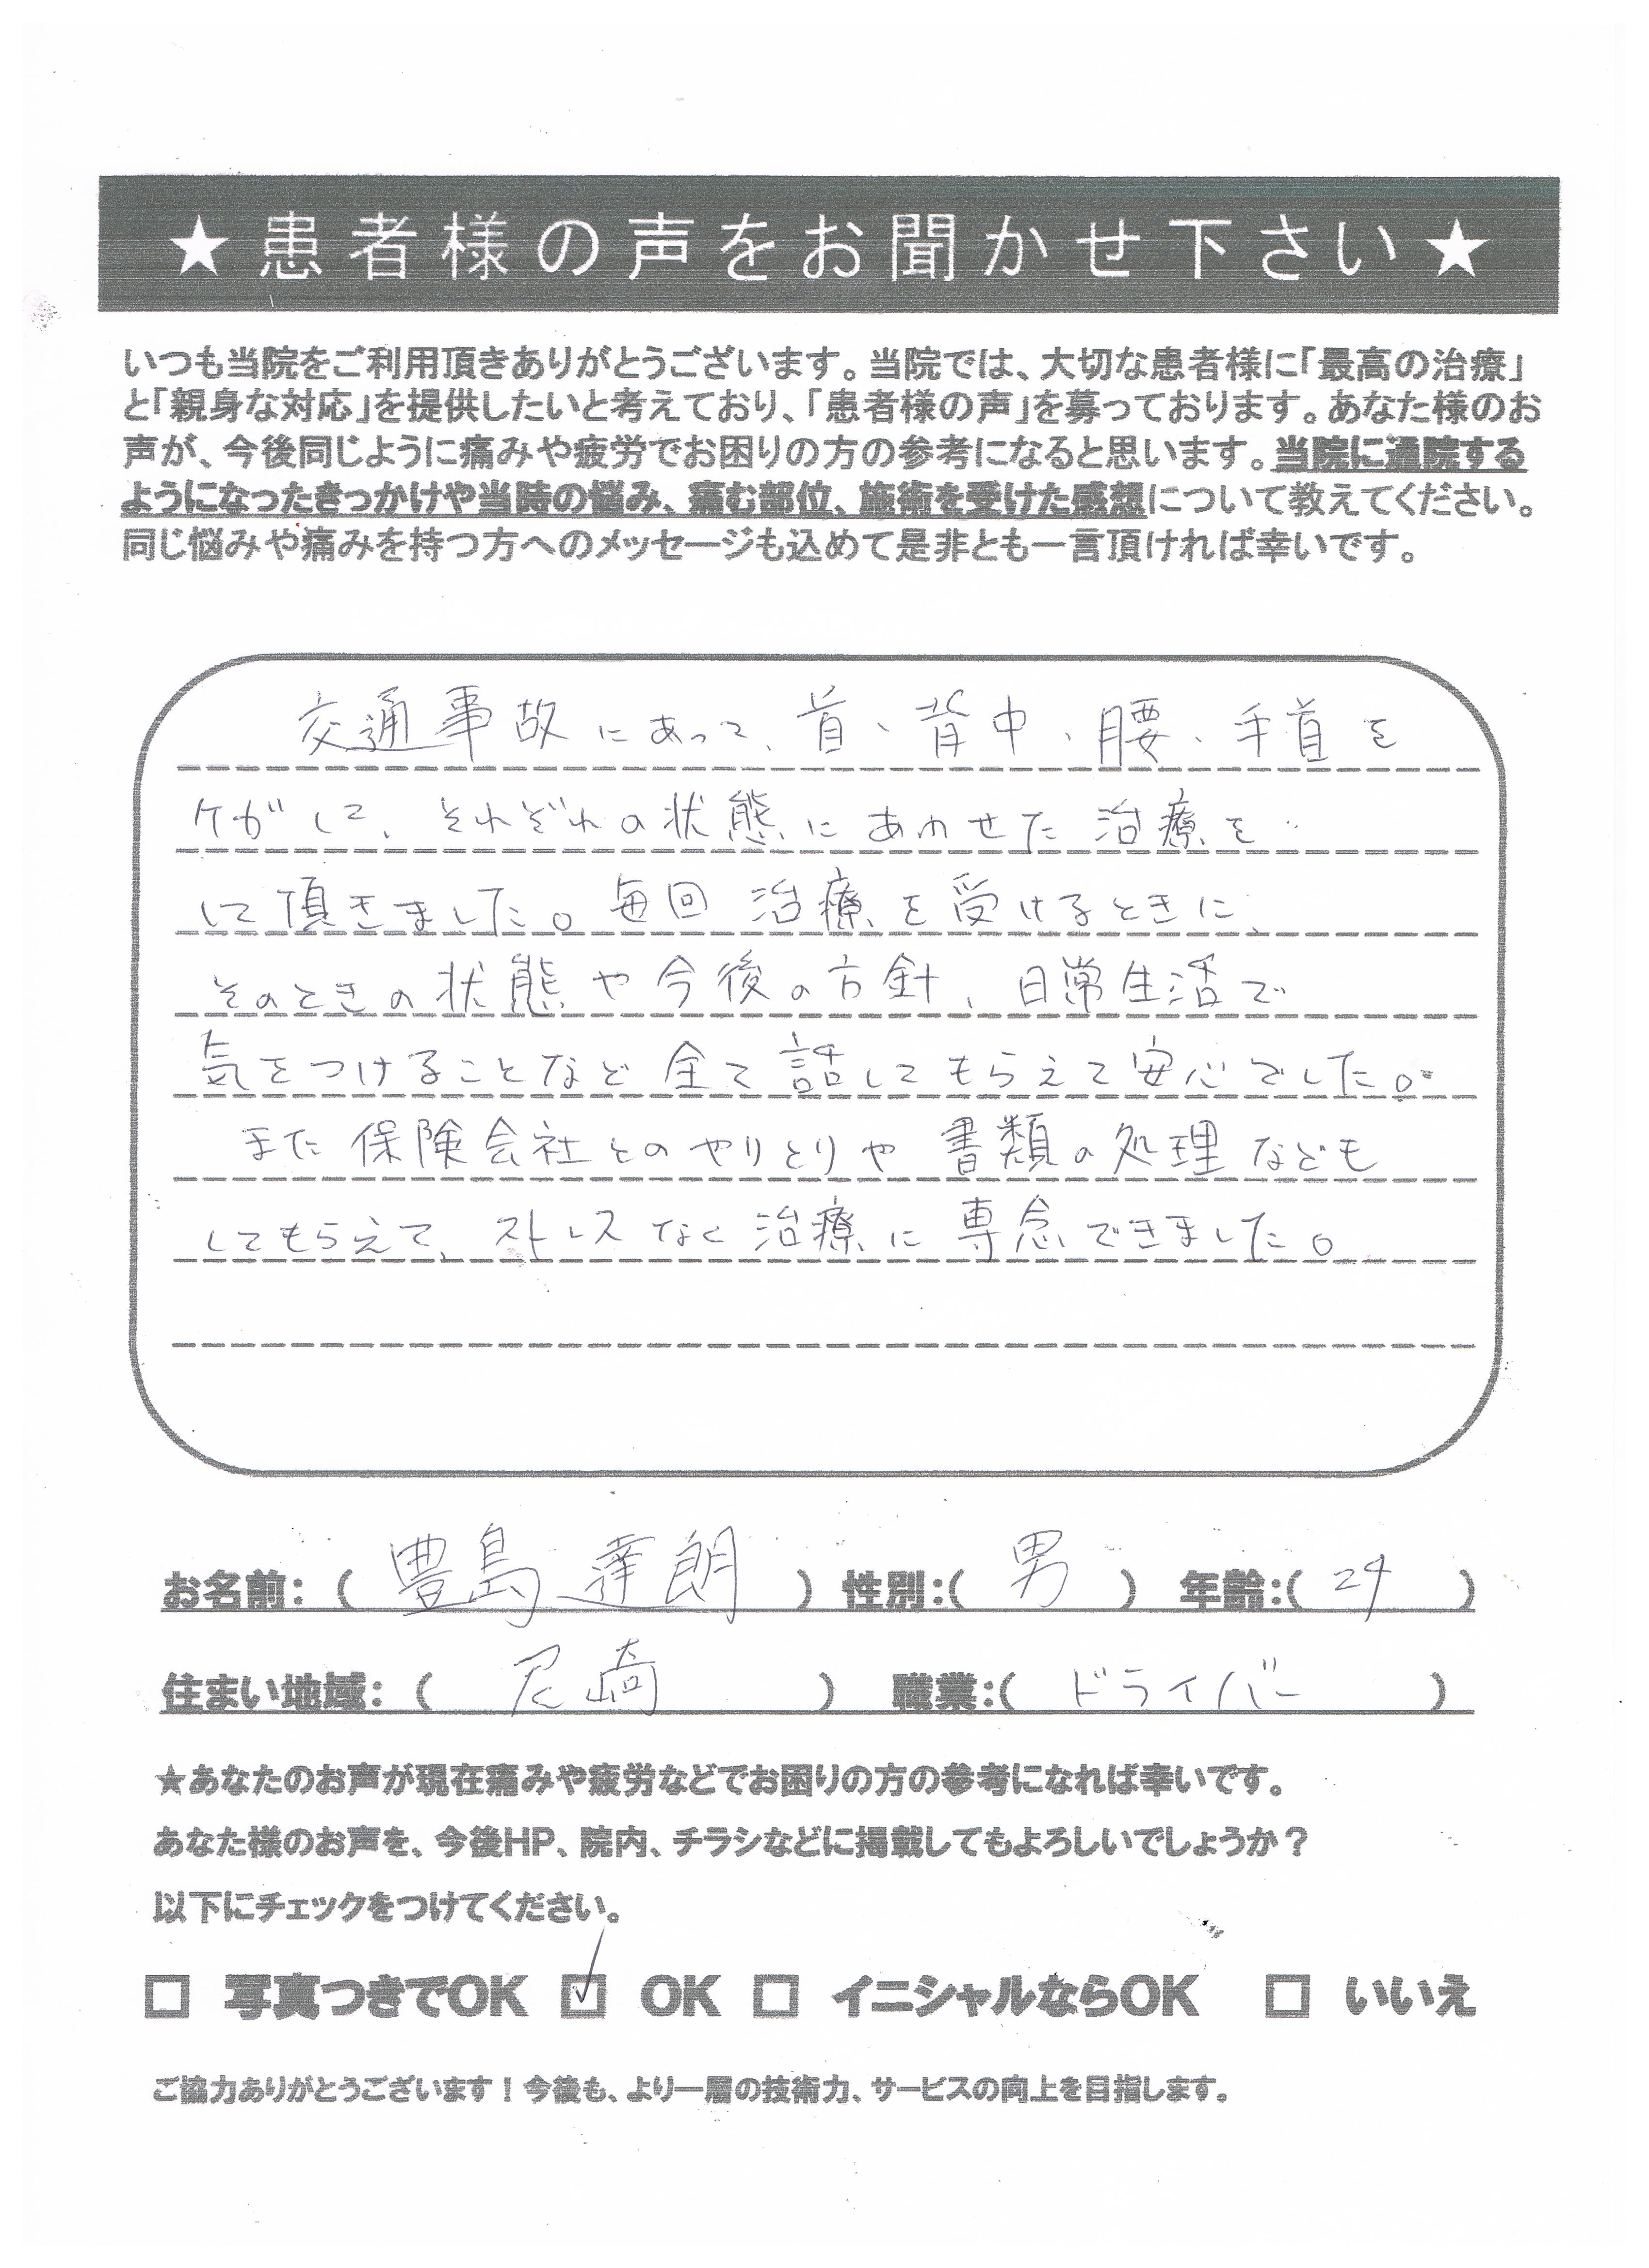 ★患者様の声をお聞かせ下さい★
いつも当院をご利用頂きありがとうございます。当院では、大切な患者様に「最高の治療」
と「親身な対応」を提供したいと考えており、「患者様の声」を募っております。あなた様のお
声が、今後同じように痛みや疲労でお困りの方の参考になると思います。当院に通院する
ようになったきっかけや当時の悩み、痛む部位、施術を受けた感想について教えてください。
同じ悩みや痛みを持つ方へのメッセージも込めて是非とも一言頂ければ幸いです。
交通事故にあって、首、背中、腰、手首を
ケガして、それぞれの状態にあわせた治療を
して頂きました。毎回治療を受けるときに、
そのときの状態や今後の方針、日常生活で
気をつけることなど全て話してもらえて安心でした。
また保険会社とのやりとりや書類の処理なども
してもらえて、ストレスなく治療に専念できました。
お名前：（ 豊島 達朗 ） 性別：（ 男 ） 年齢：（ 24 ）
住まい地域：（ 尼崎 ） 職業：（ ドライバー ）
★あなたのお声が現在痛みや疲労などでお困りの方の参考になれば幸いです。
あなた様のお声を、今後HP、院内、チラシなどに掲載してもよろしいでしょうか？
以下にチェックをつけてください。
□ 写真つきでOK ☑ OK □ イニシャルならOK □ いいえ
ご協力ありがとうございます！今後も、より一層の技術力、サービスの向上を目指します。